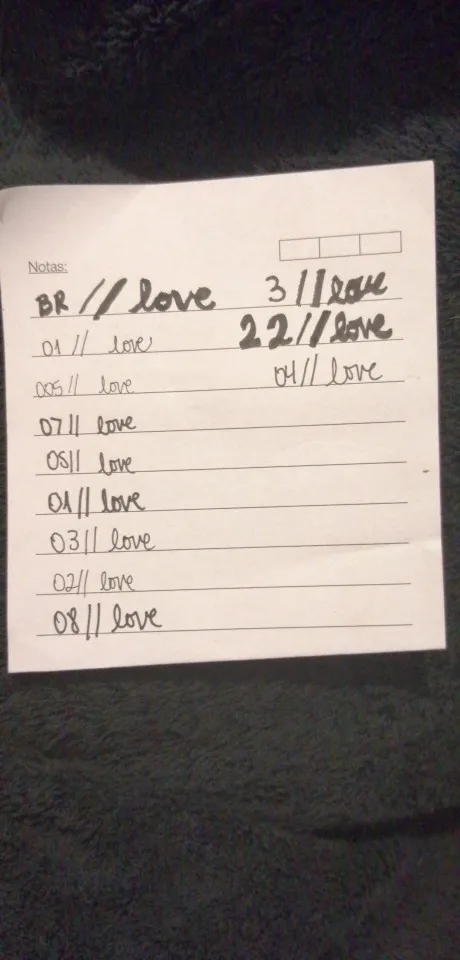 Notas:
BR // love
01 // love
005 // love
07 // love
05 // love
01 // love
03 // love
02 // love
08 // love
3 // love
22 // love
04 // love